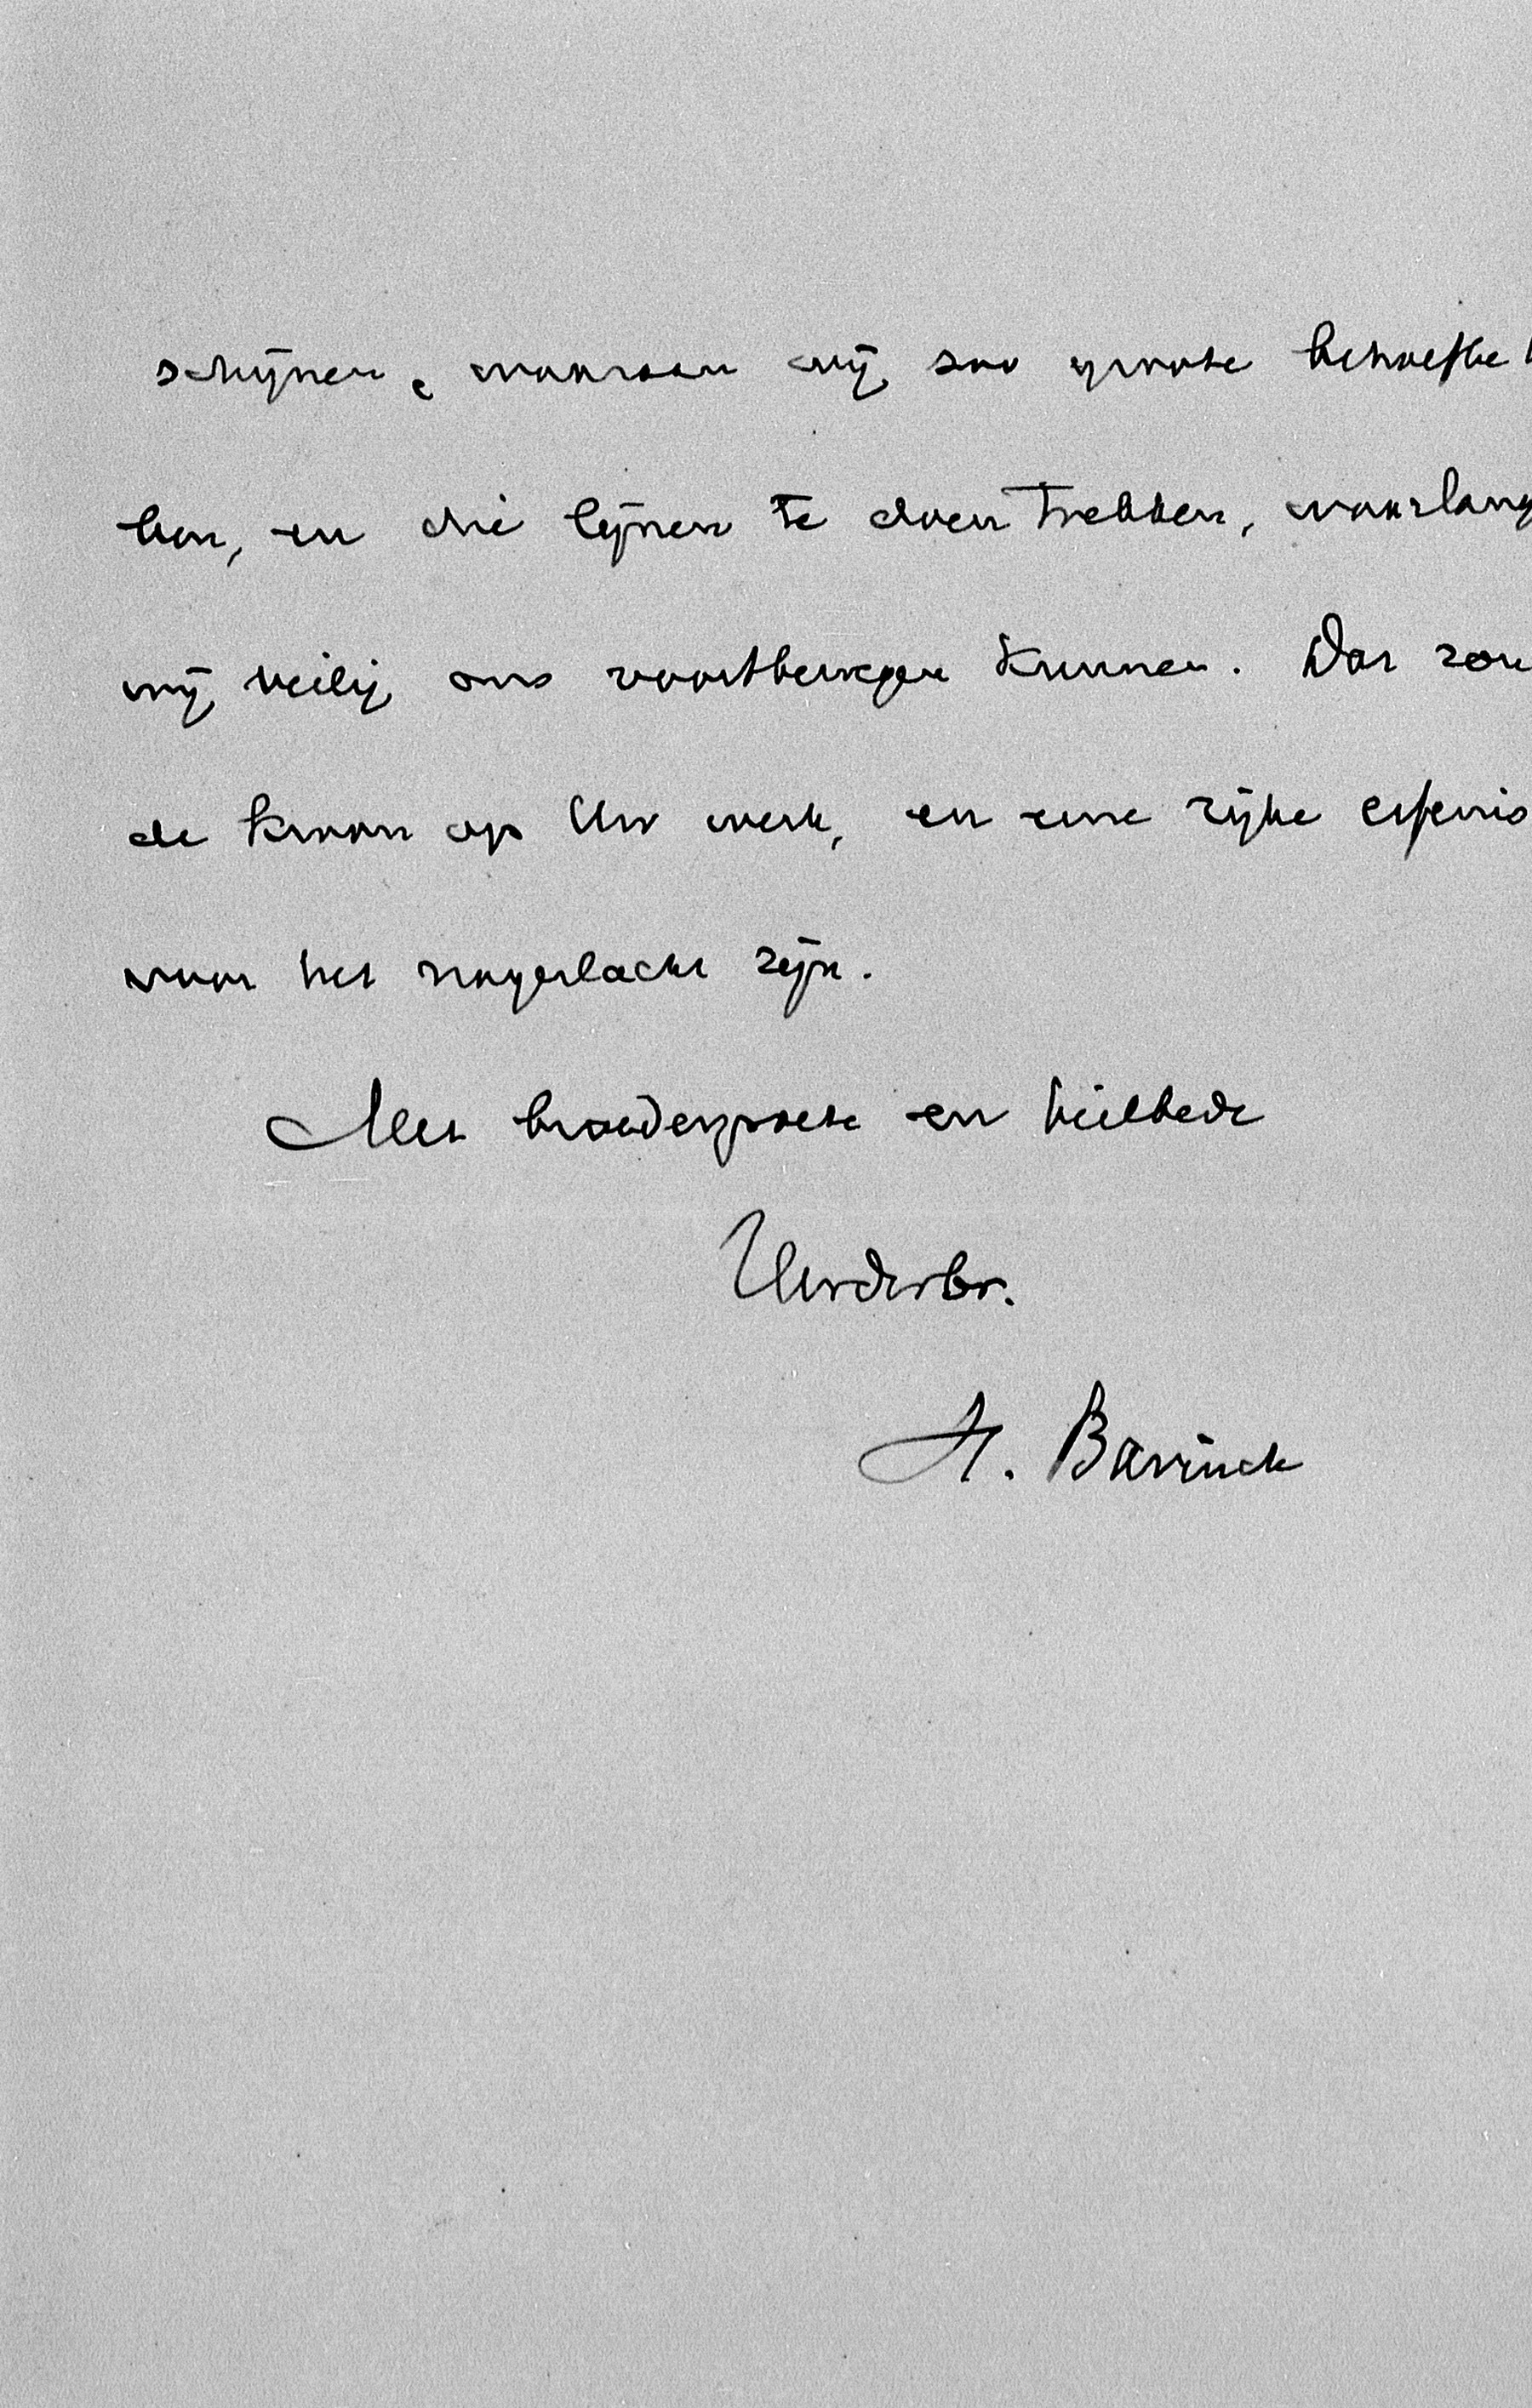 schijnen, waaraan wij zoo groote behoefte h
ben, en die lijnen te doen trekken, waarlang
wij veilig ons voortbewegen kunnen. Dat zou
de kroon op Uw werk, en eene rijke erfenis
voor het nageslacht zijn.
Met broedergroete en heilbede
Uwdwbr.
H. Bavinck